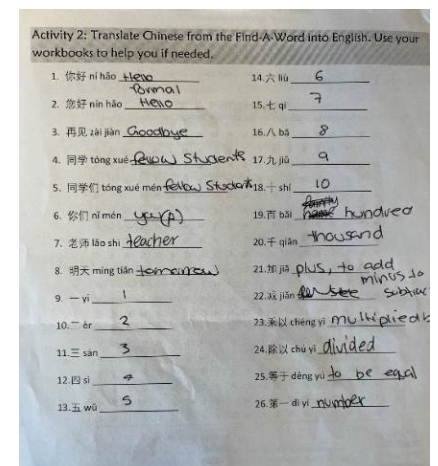 Activity 2: Translate Chinese from the Find-A-Word into English. Use your
workbooks to help you if needed.
1. 你好 nǐ hǎo Hello
2. 您好 nín hǎo Formal Hello
3. 再见 zài jiàn Goodbye
4. 同学 tóng xué fellow Students
5. 同学们 tóng xué mén fellow Students
6. 你们 nǐ mén you(p)
7. 老师 lǎo shī teacher
8. 明天 míng tiān tomorrow
9. 一 yī 1
10. 二 èr 2
11. 三 sān 3
12. 四 sì 4
13. 五 wǔ 5
14. 六 liù 6
15. 七 qī 7
16. 八 bā 8
17. 九 jiǔ 9
18. 十 shí 10
19. 百 bǎi hundred
20. 千 qiān thousand
21. 加 jiā plus, to add
22. jiǎn minus to
23. 乘以 chéng yǐ
24. 除以 chú yǐ divided
25. 等于 děng yú to be equal
26. 第一 dì yī number